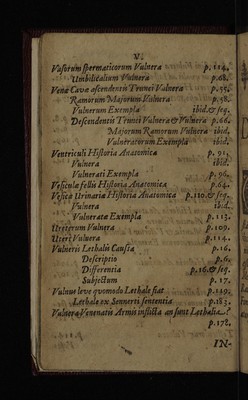 V.
Vasorum spermaticorum Vulnera p. 114.
Umbilicalium Vulnera p. 68.
Venæ Cavæ ascendentis Trunci Vulnera p. 55.
Ramorum Majorum Vulnera p. 58.
Vulnerum Exempla ibid. & seq.
Descendentis Trunci Vulnera & Vulnera p. 66.
Majorum Ramorum Vulnera ibid.
Vulneratorum Exempla ibid.
Ventriculi Historia Anatomica p. 95.
Vulnera ibid.
Vulnerati Exempla p. 96.
Vesiculæ fellis Historia Anatomica p. 64.
Vesicæ Urinariæ Historia Anatomica p. 110. & seq.
Vulnera ibid.
Vulneratæ Exempla p. 113.
Ureterum Vulnera p. 109.
Uteri Vulnera p. 114.
Vulneris Lethalis Caussa p. 16.
Descriptio p. 6.
Differentia p. 16. & seq.
Subjectum p. 17.
Vulnus leve quomodo Lethale fiat p. 149.
Lethale ex Sennerti sententia p. 183.
Vulnera Venenatis Armis inflicta an sunt Lethalia?
p. 178.
IN-